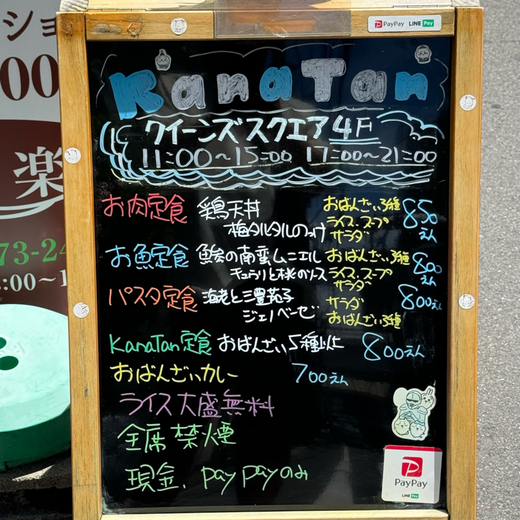 ショ
00
楽
73-24
:00~1
PayPay LINE Pay
KanaTan
クイーンズスクエア 4F
11:00~15:00 17:00~21:00
お肉定食 鶏天丼
梅タルタルのっけ
おばんざい3種
ライス、スープ
サラダ
850えん
お魚定食 鯵の南蛮ムニエル
キュウリと秋のソース
おばんざい3種
ライス、スープ
サラダ
800えん
パスタ定食 海老と三豊茄子
ジェノベーゼ
サラダ
おばんざい3種
800えん
KanaTan定食 おばんざい5種以上 800えん
おばんざいカレー 700えん
ライス大盛無料
全席禁煙
現金、paypayのみ
PayPay
LINE Pay